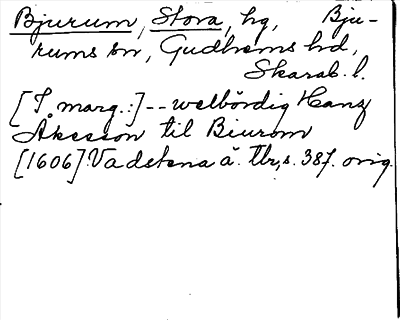 Bjurum, Stora, hg, Bju-
rums sn, Gudhems hd,
Skarab. l.
[I marg.:] -- welbördig Hanz
Åkesson til Biurom
[1606] Vadstena ä. tbr, s. 387. orig.